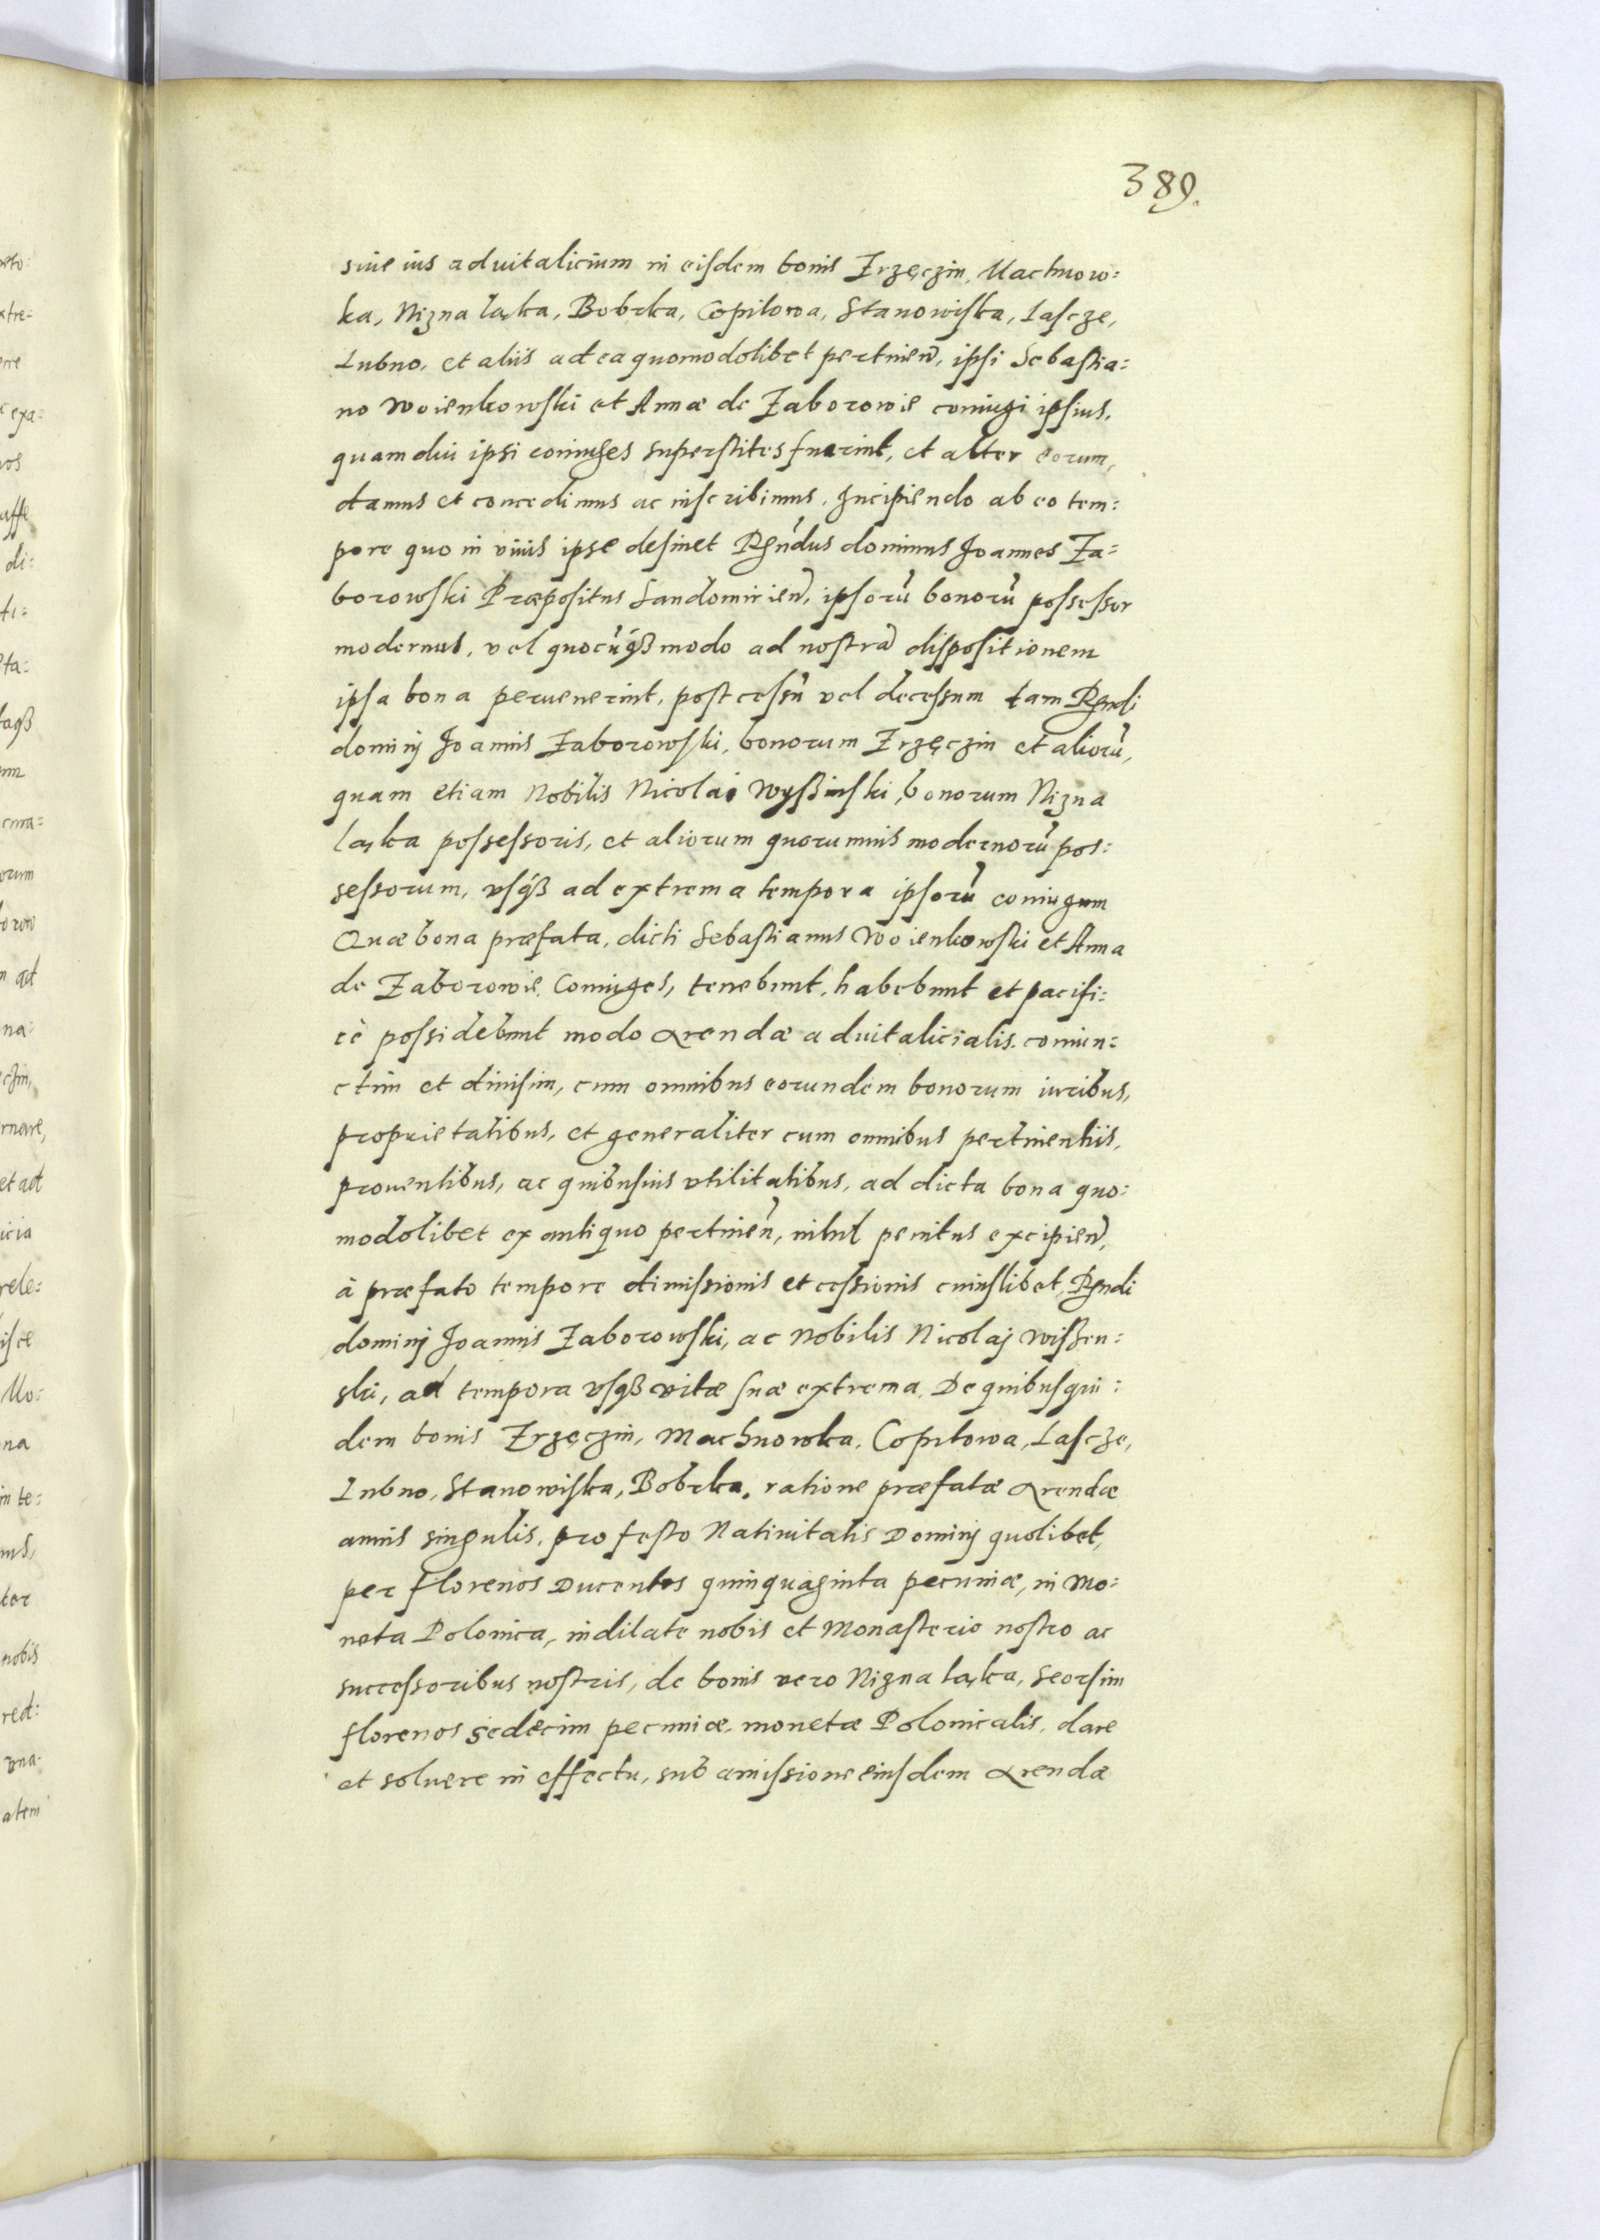 389.
siue ius aduitalicium in eisdem bonis Zrzęczin, Machnow:
ka, Nizna laka, Bobrka, Copitowa, Stanowiska, Lascze,
Lubno, et aliis ad ea quomodolibet pertinen, ipsi Sebastia:
no Woienkowski et Annæ de Zaborowie coniugi ipsius,
quamdiu ipsi coniuges superstites fuerint, et alter eorum,
damus et concedimus ac inscribimus. Incipiendo ab eo tem:
pore quo in viuis ipse desinet Rgndus dominus Joannes Za:
borowski Præpositus Sandomirien, ipsorũ bonorũ possessor
modernus, vel quocũqꝫ modo ad nostrã dispositionem
ipsa bona peruenerint, post cessũ vel decessum tam Rgndi
dominj Joannis Zaborowski, bonorum Zrzęczin et aliorũ,
quam etiam Nobilis Nicolai Wyssinski, bonorum Nizna
laka possessoris, et aliorum quorumuis modernorũ pos:
sessorum, vsqꝫ ad extrema tempora ipsorũ coniugum
Quæ bona præfata, dicti Sebastianus Woienkowski et Anna
de Zaborowie Coniuges, tenebunt, habebunt et pacifi:
cè possidebunt modo arendæ aduitalicialis coniun:
ctim et diuisim, cum omnibus eorundem bonorum iuribus,
proprietatibus, et generaliter cum omnibus pertinentiis,
prouentibus, ac quibusuis vtilitatibus, ad dicta bona quo:
modolibet ex antiquo pertinen, nihil penitus excipien,
à præfato tempore dimissionis et cessionis cuiuslibet, Rgndi
dominj Joannis Zaborowski, ac Nobilis Nicolaj Wissen:
ski, ad tempora vsqꝫ vitæ suæ extrema. De quibusqui:
dem bonis Zrzęczin, Machnowka, Copitowa, Lascze,
Lubno, Stanowiska, Bobrka, ratione præfatæ arendæ
annis singulis, pro festo Natiuitatis Dominj quolibet,
per florenos Ducentos quinquaginta pecuniæ, in Mo:
neta Polonica, indilate nobis et Monasterio nostro ac
successoribus nostris, de bonis vero Nizna laka, seorsim
florenos sedecim pecuniæ, monetæ Polonicalis, dare
et soluere in effectu, sub amissione eiusdem arendæ